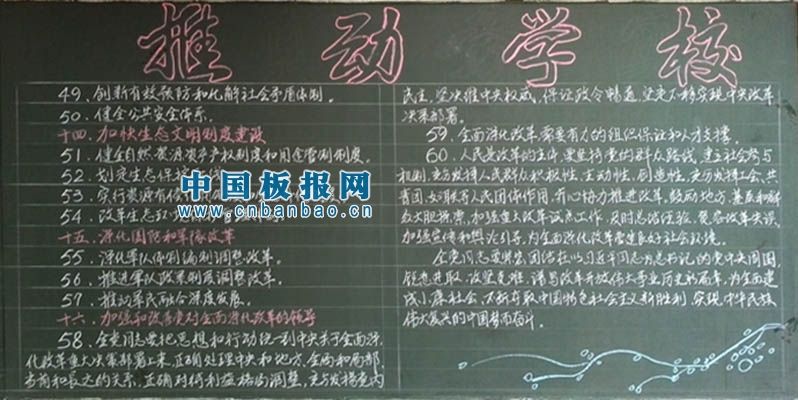 推动学校
49、创新有效预防和化解社会矛盾体制。
50、健全公共安全体系。
十四、加快生态文明制度建设
51、健全自然资源资产产权制度和用途管制制度。
52、划定生态保
53、实行资源有
54、改革生态环
中国板报网
www.cnbanbao.cn
十五、深化国防和军队改革
55、深化军队体制编制调整改革。
56、推进军队政策制度调整改革。
57、推动军民融合深度发展。
十六、加强和改善党对全面深化改革的领导
58、全党同志要把思想和行动统一到中央关于全面深
化改革重大决策部署上来，正确处理中央和地方、全局和局部、
当前和长远的关系，正确对待利益格局调整，充分发扬党内
民主，坚决维护中央权威，保证政令畅通，坚定不移实现中央改革
决策部署。
59、全面深化改革需要有力的组织保证和人才支撑。
60、人民是改革的主体，要坚持党的群众路线，建立社会参与
机制，充分发挥人民群众积极性、主动性、创造性，充分发挥工会、共
青团、妇联等人民团体作用，齐心协力推进改革。鼓励地方、基层和群
众大胆探索，加强重大改革试点工作，及时总结经验，宽容改革失误，
加强宣传和舆论引导，为全面深化改革营造良好社会环境。
全党同志要紧密团结在以习近平同志为总书记的党中央周围，
锐意进取，攻坚克难，谱写改革开放伟大事业历史新篇章，为全面建
成小康社会、不断夺取中国特色社会主义新胜利、实现中华民族
伟大复兴的中国梦而奋斗。